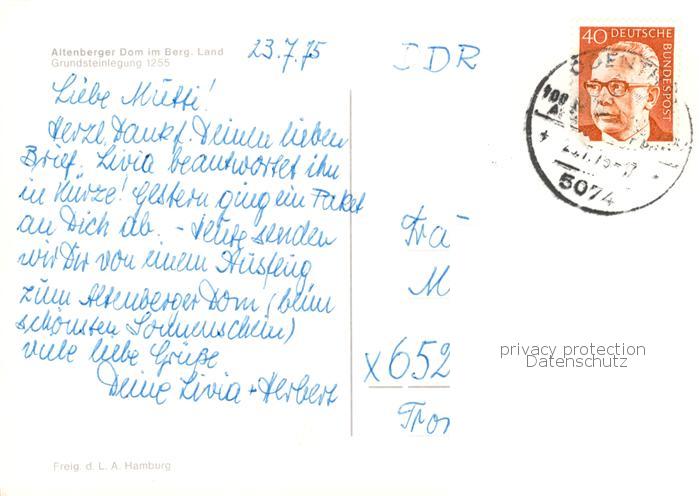 Altenberger Dom im Berg. Land
Grundsteinlegung 1255
23.7.75
Liebe Mutti!
Herzl. Dank f. Deinen lieben
Brief. Livia beantwortet ihn
in Kürze! Gestern ging ein Paket
an Dich ab. - Heute senden
wir Dir von einem Ausflug
zum Altenberger Dom (beim
schönsten Sonnenschein)
viele liebe Grüße
Deine Livia + Herbert
Freig. d. L. A. Hamburg
DDR
40 DEUTSCHE
BUNDESPOST
ODENT
5074
Fra
M
X652
Tro
privacy protection
Datenschutz